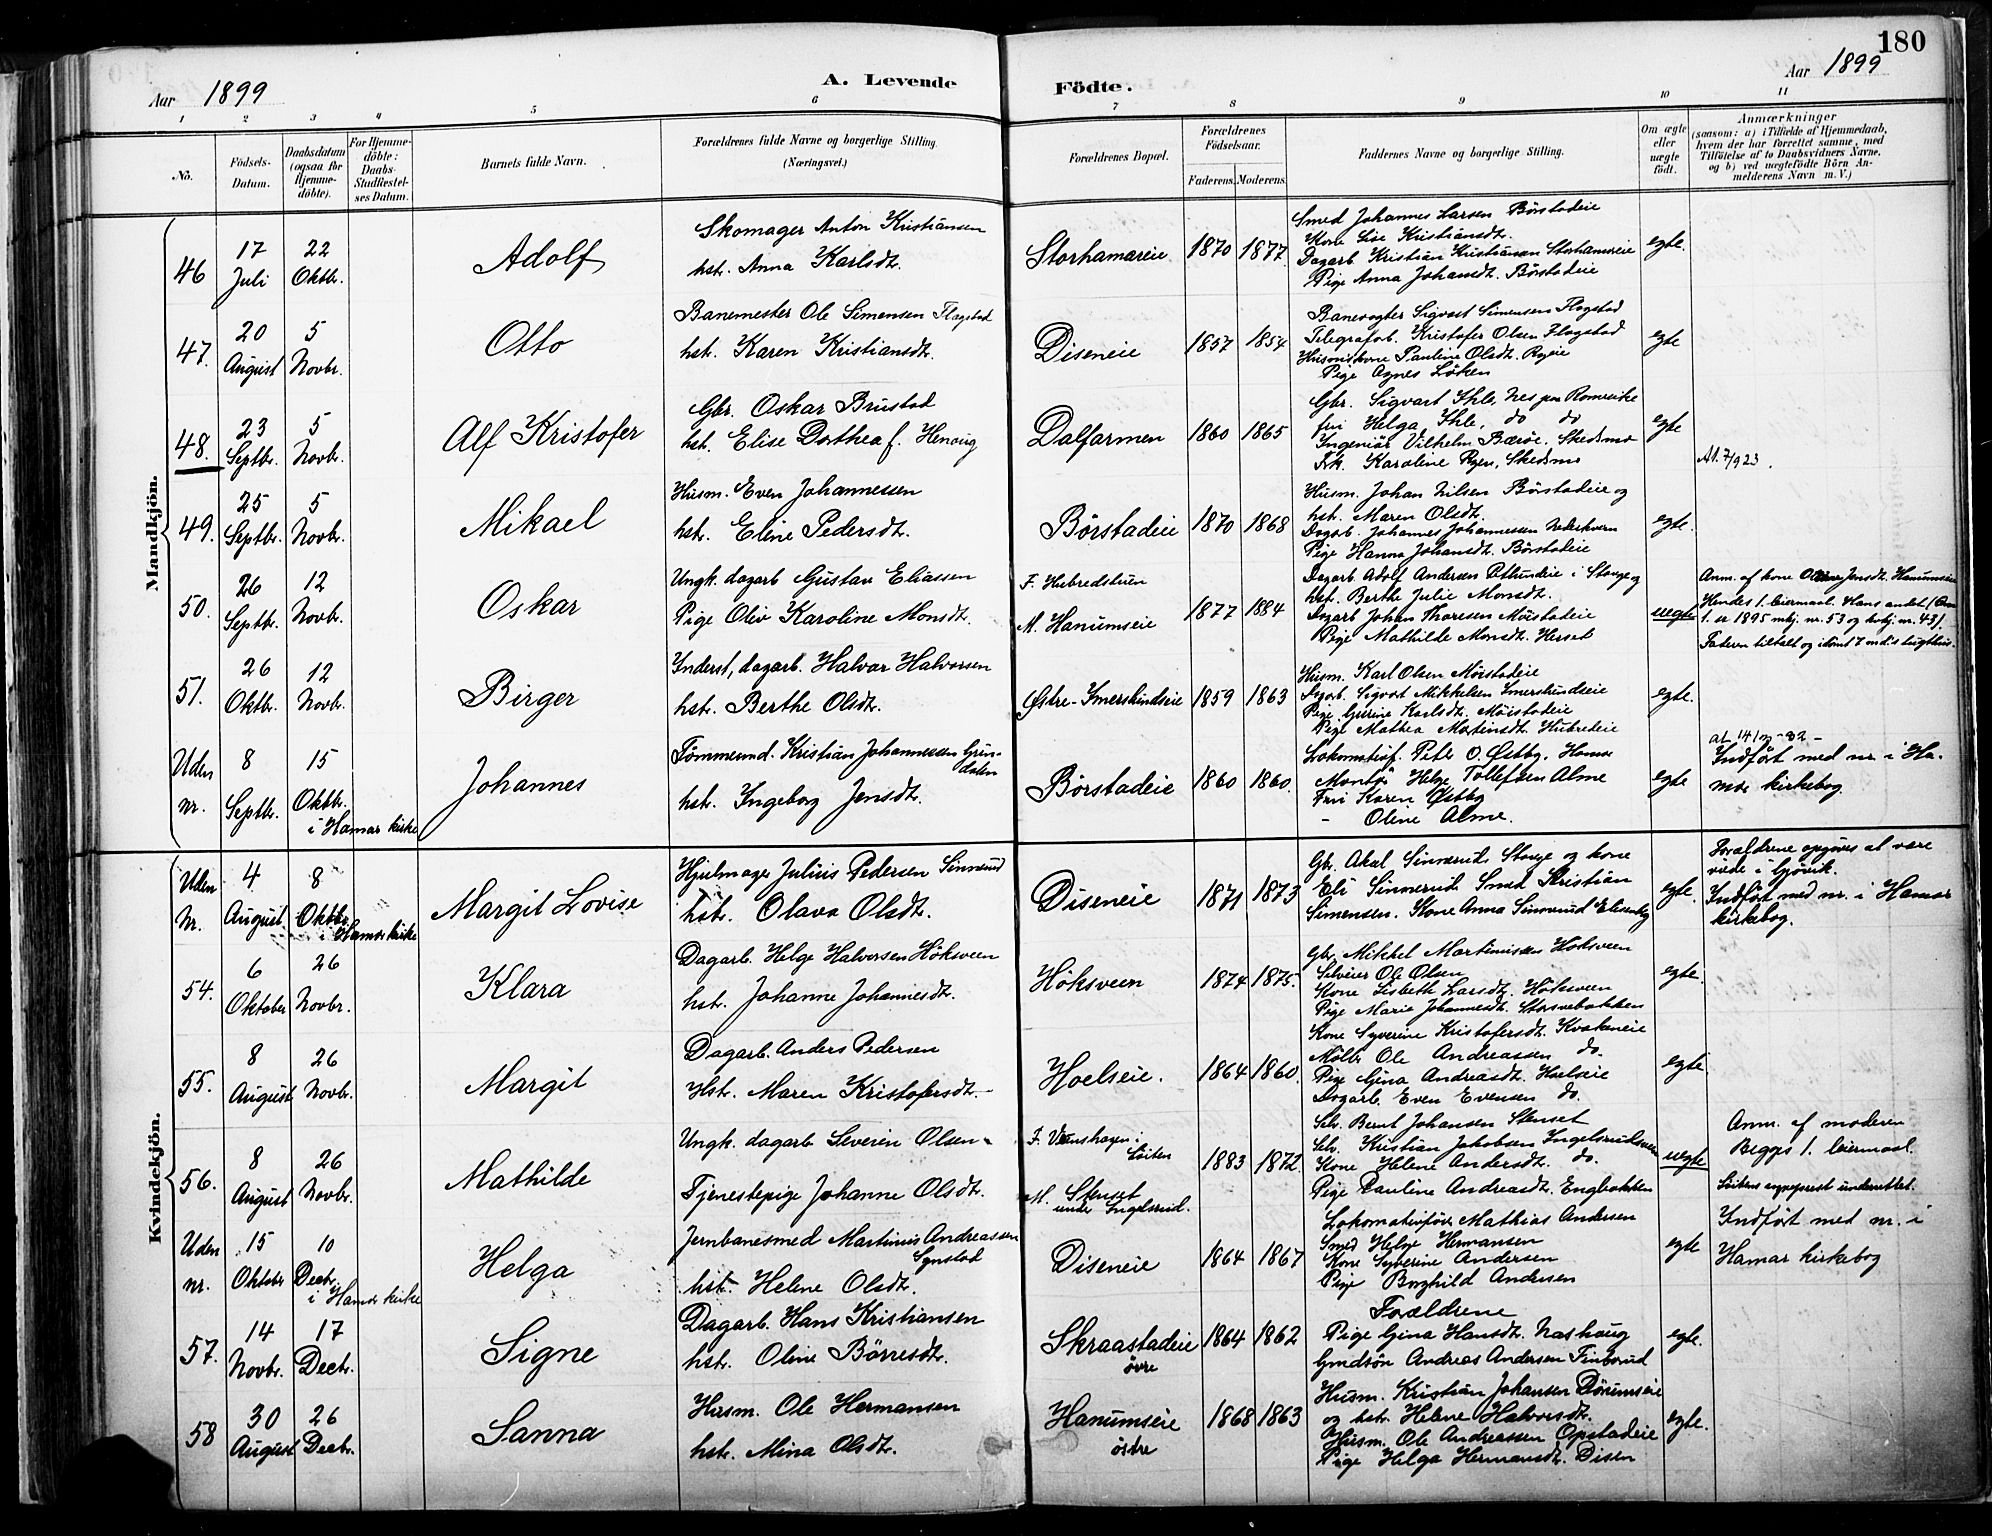 180
Aar 1899
A. Levende
Födte.
Aar 1899
1 2 3 4 5 6 7 8 9 10 11
No.
Födsels-Datum.
Daabsdatum (ogsaa for Hjemmedöbte).
For Hjemmedöbte: Daabs-Stadfæstelses Datum.
Barnets fulde Navn.
Forældrenes fulde Navne og borgerlige Stilling.
(Næringsvei.)
Forældrenes Bopæl.
Forældrenes Födselsaar.
Faderens. Moderens.
Faddernes Navne og borgerlige Stilling.
Om ægte eller uægte födt.
Anmærkninger
(saasom: a) i Tilfælde af Hjemmedaab,
hvem der har forrettet samme, med
Tilföielse af to Daabsvidners Navne,
og b) ved uægtefödte Börn Anmelderens Navn m. V.)
Mandkjön.
46
17 Juli
22 Oktbr.
Adolf
Skomager Anton Kristiansen
hst. Anna Karlsdt.
Storhamareie
1870 1877.
Smed Johannes Larsen Börstadeie
Kone Lise Kristiansdt.
Dagarb. Kristian Kristiansen Storhamareie
Pige Anna Johansdt. Börstadeie
egte.
47.
20 August
5 Novbr.
Otto
Banemester Ole Simensen Flagstad
hst. Karen Kristiansdt.
Diseneie
1857 1854
Banevogter Sigvart Simensen Flagstad
Telegrafob. Kristofer Olsen Flagstad
Pauline Olsdt.
Pige Agnes Löken
egte
48.
23 Septbr.
5 Novbr.
Alf Kristofer
Gbr. Oskar Brustad
hst. Elise Dorthea f.
Dalfarmen
1860 1865
Gbr. Sigvart Ihle, Nes paa Romerike
fru Helga Ihle, do do
Ingeniör Vilhelm Bærøe, Skedsmo
Frk. Karoline Ryen, Skedsmo
egte
49.
25 Septbr.
5 Novbr.
Mikael
Husm. Even Johannessen
hst. Eline Pedersdt.
Börstadeie
1870 1868
Husm. Johan Nilsen Börstadeie og
hst. Maren Olsdt.
Dagarb. Johannes Johannessen
Pige Hanna Johansdt. Börstadeie
egte.
50.
26 Septbr.
12 Novbr.
Oskar
Ungk. dagarb. Gustav Eliassen
Pige Oliv Karoline Monsdt.
F. Hubredstuen
M. Hanumseie
1877 1884
Dagarb. Adolf Andersen i Stange og
hst. Berthe Julie Monsdt.
Dagarb. Johan Thoresen Möistadeie
Pige Mathilde Monsdt. Herset
uegte
Anm. af kone Jensdt. Hanumseie
Hendes 1. leiermaal. Hans andet
1. er 1895 mkj. nr. 53 og kvkj. nr. 45).
Faderen tiltalt og idömt 7 md.s
51.
26 Oktbr.
12 Novbr.
Birger
Inderst, dagarb. Halvor Halvorsen
hst. Berthe Olsdt.
Østre-Imerslundseie
1859 1863
Husm. Karl Olsen Möistadeie
Dagarb. Sigvart Mikkelsen Imerslundseie
Pige Gurine Karlsdt. Möistadeie
Pige Mathea Martinsdt.
egte.
Uden nr.
8 Septbr.
15 Oktbr.
i Hamar kirke
Johannes
Tömmermd. Kristian Johannessen Grindalen
hst. Ingeborg Jensdt.
Börstadeie
1860 1860.
Lokomotivf. Peter O. Østby, Hamar
Montör Helge Tollefsen Alme
Fru Karen Østby
- Oline Alme.
egte
Indfört med nr. i Hamar kirkebog.
Kvindekjön.
Uden Nr.
4 August
8 Oktbr.
i Hamar kirke
Margit Lovise
Hjulmager Julius Pedersen Sinnerud
hst. Olava Olsdt.
Diseneie
1871 1873
Gbr. Aksel Sinnerud Stange og kone
Eli Sinnerud. Smed Kristian
Simensen. Kone Anna Sinnerud
egte.
Forældrene opgives at være
viede i Gjövik.
Indfört med nr. i Hamar
kirkebog.
54.
6 Oktober
26 Novbr.
Klara
Dagarb. Helge Halvorsen Höksveen
hst. Johanne Johannesdt.
Höksveen
1874 1875.
Gbr. Mikkel Martinussen Höksveen
Selveier Ole Olsen
Kone Lisbeth Larsdt. Höksveen
Pige Marie Johannesdt.
egte.
55.
8 August
26 Novbr.
Margit
Dagarb. Anders Pedersen
Hst. Maren Kristofersdt.
Hoelseie.
1864 1860.
Kone Syverine Kristofersdt. Kvakeneie
Ole Andreassen do.
Pige Gina Andreasdt. Hoelseie
Dagarb. Even Evensen do.
egte
56.
8 August
26 Novbr.
Mathilde
Ungk. dagarb. Severin Olsen
Tjenestepige Johanne Olsdt.
F. i Löiten
M. Stenset under Ingelsrud.
1883 1872.
Selv. Bernt Johansen Stenset
Selv. Kristian Jakobsen Ingelsrudsveen
Kone Helene Andersdt. do.
Pige Pauline Andreasdt. Engbakken
uegte
Anm. af moderen
Begges 1. leiermaal.
Löitens sogneprest underrettet.
Uden nr.
15 Oktober
10 Decbr.
i Hamar kirke
Helga
Jernbanesmed Martinus Andreassen Synstad
hst. Helene Olsdt.
Diseneie
1864 1867
Lokomotivförer Mathias Andersen
Smed Helge Hermansen
Kone Syverine Andersen
Pige Borghild Andersen
egte
Indfört med nr. i
Hamar kirkebog
57.
14 Novbr.
17 Decbr.
Signe
Dagarb. Hans Kristiansen
hst. Oline Börresdt.
Skraastadeie övre
1864 1862
Forældrene
Pige Gina Hansdt. Nashaug
Gmdsön Andreas Andersen Finborud
egte.
58
30 August
26 Decbr.
Sanna
Husm. Ole Hermansen
hst. Mina Olsdt.
Hanumseie östre
1868 1863
Husm. Kristian Johansen
og hst. Helene Halvorsdt.
Husm. Ole Andreassen Opstadeie
Pige Helga Hermansdt. Disen
egte.